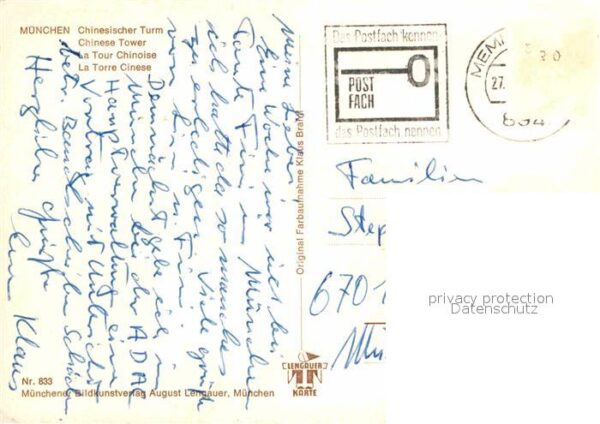 MÜNCHEN Chinesischer Turm
Chinese Tower
La Tour Chinoise
La Torre Cinese
Meine Lieben!
Eine Woche war ich bei
Tante Fini in München
ich hatte da so manches
zu erledigen. Viele Grüße
von u. Fini.
Demnächst gebe ich in
München bei der ADAC
Hauptverwaltung einen
Vortrag mit Unterricht
betr. Bandscheiben Schäden
Herzliche Grüße
Euer Klaus
Original Farbaufnahme Klaus Brantl
Das Postfach kennen
POST
FACH
das Postfach nennen
MEMM
27.
Familien
Step
6701
privacy protection
Datenschutz
Nr. 833
Münchener Bildkunstverlag August Lengauer, München
LENGAUER
KARTE